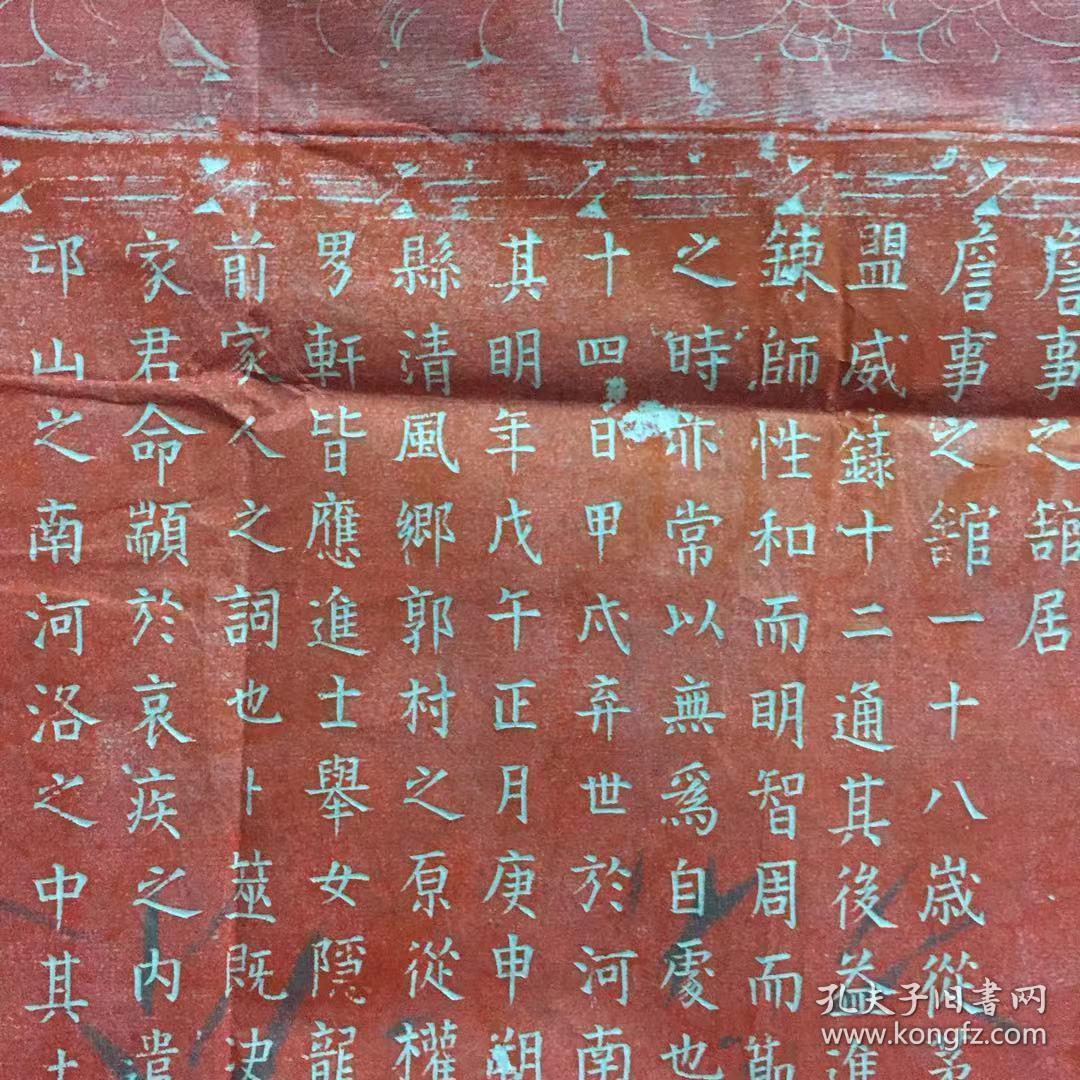 詹事之舘居
詹事之舘一十八歲從
盟威籙十二通其後益進
鍊師性和而明智周而
之時亦常以無爲自處也
十四日甲戌弃世於河南
其明年戊午正月庚申朔
縣清風鄉郭村之原從權
男軒皆應進士舉女隱龍
前家人之詞也卜筮既決
家君命顓於哀疾之内遣
邙山之南河洛之中其土
孔夫子旧书网
www.kongfz.com